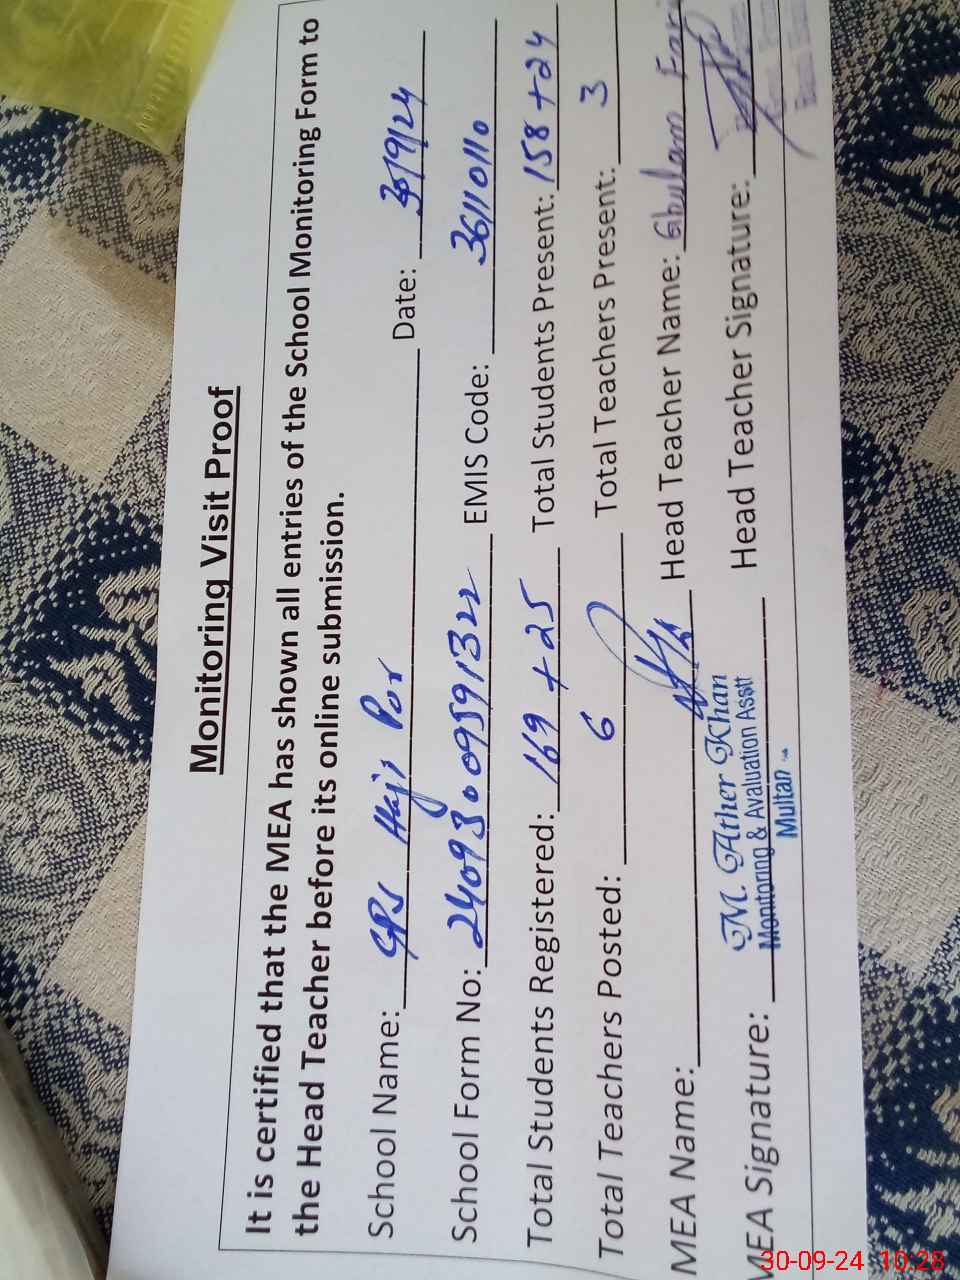 Monitoring Visit Proof
It is certified that the MEA has shown all entries of the School Monitoring Form to
the Head Teacher before its online submission.
School Name: GPS Haji Pur Date: 30/9/24
School Form No: 24093009591322 EMIS Code: 36110110
Total Students Registered: 169 + 25 Total Students Present: 158 + 24
Total Teachers Posted: 6 Total Teachers Present: 3
MEA Name: Head Teacher Name: Ghulam
M. Ather Khan
Monitoring & Avaluation Asstt
Multan
MEA Signature: Head Teacher Signature:
30-09-24 10:28